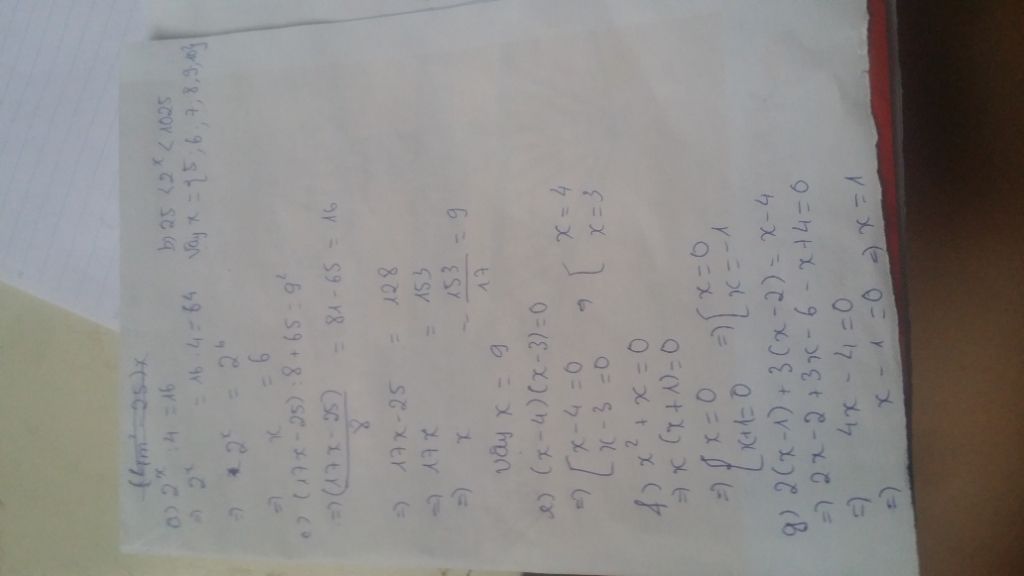 a) 2^x : 4 = 16
b) 25 < 2^x < 1025
=> 2^x = 16 . 4 = 64
Vậy x = {5, 6, 7, 8, 9, 10}
=> 2^x = 2^6
=> x = 6
c) (17x - 25) : 8 + 65 = 9^2
=> (17x - 25)/8 = 81 - 65 = 16
=> 17x - 25 = 128
=> 17x = 153
=> x = 153/17 = 9
Vậy x = 9
e) (x - 4)(x - 3) = 0
=> [ x - 4 = 0 => [ x = 4
[ x - 3 = 0 [ x = 3
f) x^2 + x = 0
=> x (x + 1) = 0
=> [ x = 0 => [ x = 0
[ x + 1 = 0 [ x = -1
g) 2(x - 1) + 3(x - 2) = x - 4
=> 2x - 2 + 3x - 6 - x + 4 = 0
=> 4x - 4 = 0
=> x - 1 = 0 => x = 1